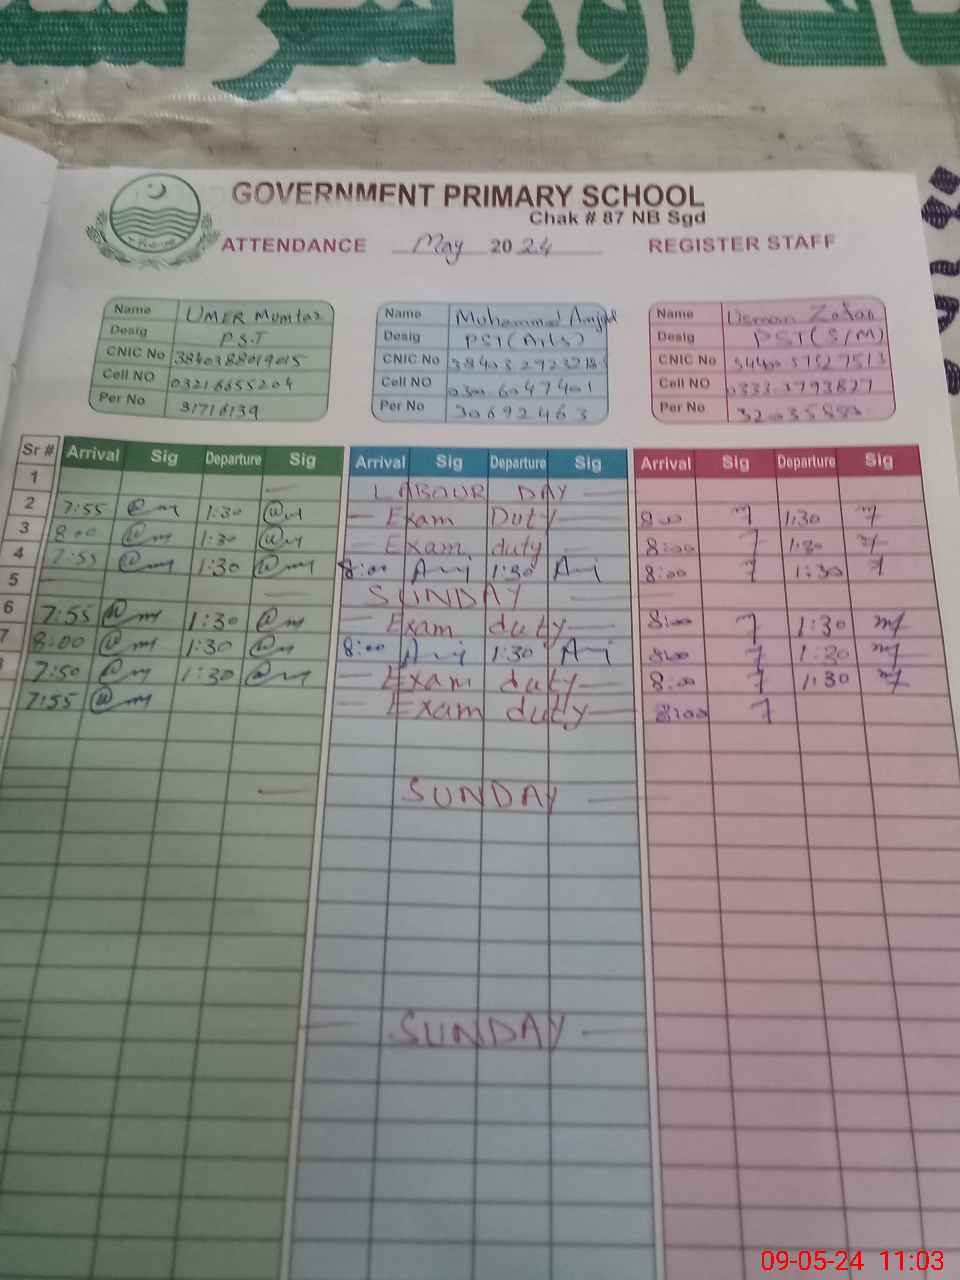 اور سر
GOVERNMENT PRIMARY SCHOOL
Chak # 87 NB Sgd
ATTENDANCE May 2024 REGISTER STAFF
Name UMER Mumtaz
Desig P.S.T
CNIC No
Cell NO 03216655204
Per No 31716139
Name Muhammad Amjad
Desig PST (Arts)
CNIC No
Cell NO 0300-6047401
Per No 30692463
Name Usman Zafar
Desig PST (S/M)
CNIC No
Cell NO
Per No
Sr # Arrival Sig Departure Sig Arrival Sig Departure Sig Arrival Sig Departure Sig
1 LABOUR DAY
2 7:55 1:30 Exam Duty 8:00 1:30
3 8:00 1:30 Exam duty 8:00 1:30
4 7:55 1:30 8:00 1:30 8:00 1:30
5 SUNDAY
6 7:55 1:30 Exam duty 8:00 1:30
7 8:00 1:30 8:00 1:30 8:00 1:30
7:50 1:30 Exam duty 8:00 1:30
7:55 Exam duty 8:00
SUNDAY
SUNDAY
09-05-24 11:03